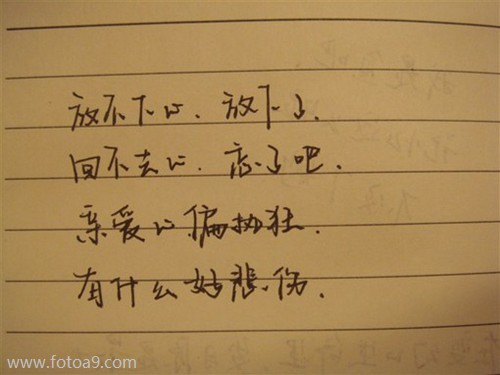 放不下心.放下了.
回不去心.忘了吧.
亲爱心偏执狂.
有什么好悲伤.
www.fotoa9.com